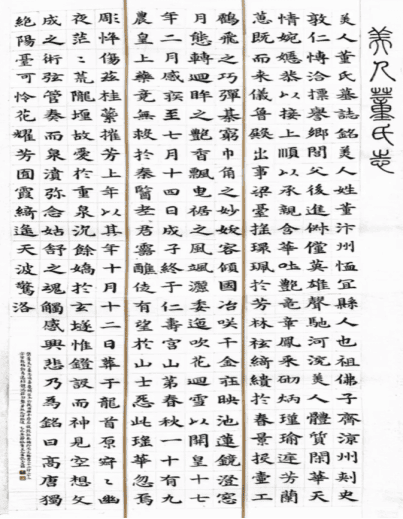 美人董氏志
美人董氏墓誌銘美人姓董汴州恤宜縣人也祖佛子齊涼州刾史
敦仁博洽摽譽鄉閭父後進俶儻英雄聲馳河浣美人體質閑華天
情婉嫕恭以接上順以承親含華吐艷竜章鳳采砌炳瑾瑜庭芳蘭
蕙既而来儀魯殿出事梁臺搖環珮於芳林袨綺繢於春景投壺工
鶴飛之巧彈棊窮巾角之妙妖容傾國冶咲千金莊映池蓮鏡澄窓
月態轉迴眸之艷香飄曳裾之風颯灑委迤吹花迴雪以開皇十七
年二月感疾至七月十四日戌子終于仁壽宮山第春秋一十有九
農皇上藥竟無救於秦醫老君靈醮徒有望於山士悉此瑤華忽焉
彫悴傷茲桂蘂摧芳上年以其年十月十二日葬于龍首原齊〻幽
夜茫〻荒隴埋故愛於重泉沉餘嬌於玄燧惟鐙設而神見空想文
成之術弦管奏而泉濆弥念姑舒之魂觸感興悲乃為銘曰高唐獨
絕陽臺可怜花耀芳囿霞綺遙天波驚洛